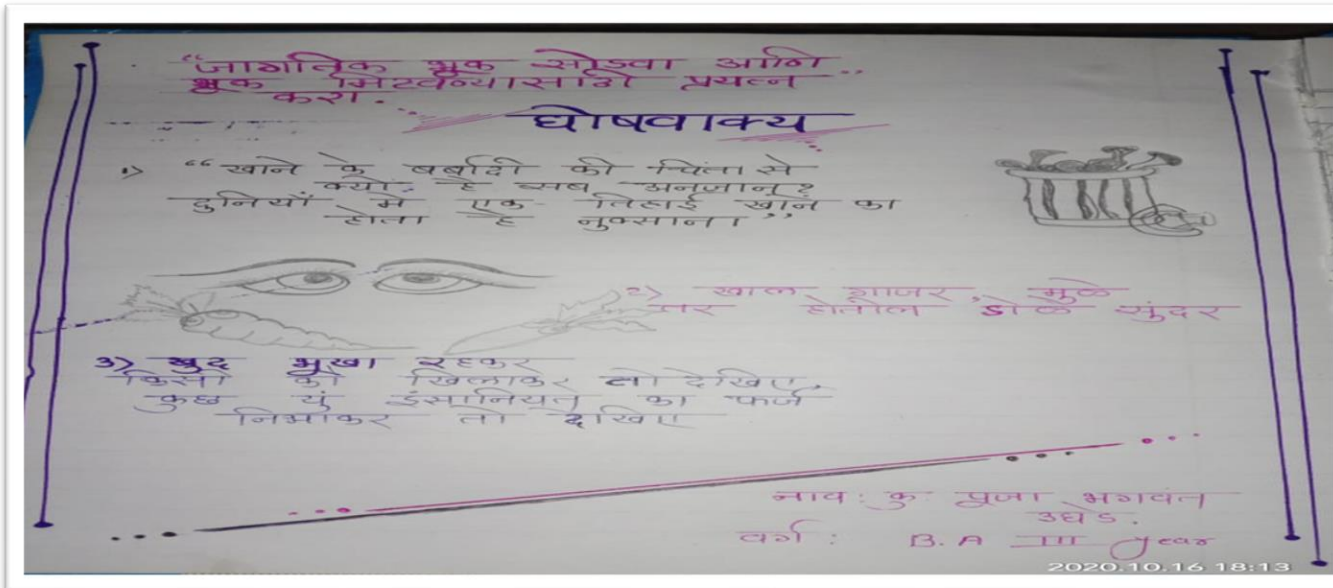 “जागतिक भूक सोडवा आणि
भूक मिटवण्यासाठी प्रयत्न”
करा.
घोषवाक्य
1) “खाने के बर्बादी की चिंता से
क्यों है सब अनजान?
दुनियाँ मे एक तिहाई खाने का
होता है नुक्सान।”
2) खाल गाजर, मुळे
तर होतील डोळे सुंदर
3) खुद भूखा रहकर
किसी को खिलाकर तो देखिए,
कुछ यूं इंसानियत का फर्ज
निभाकर तो देखिए
नाव: कु पूजा भगवंत
उघडे.
वर्ग: B.A III year
2020.10.16 18:13